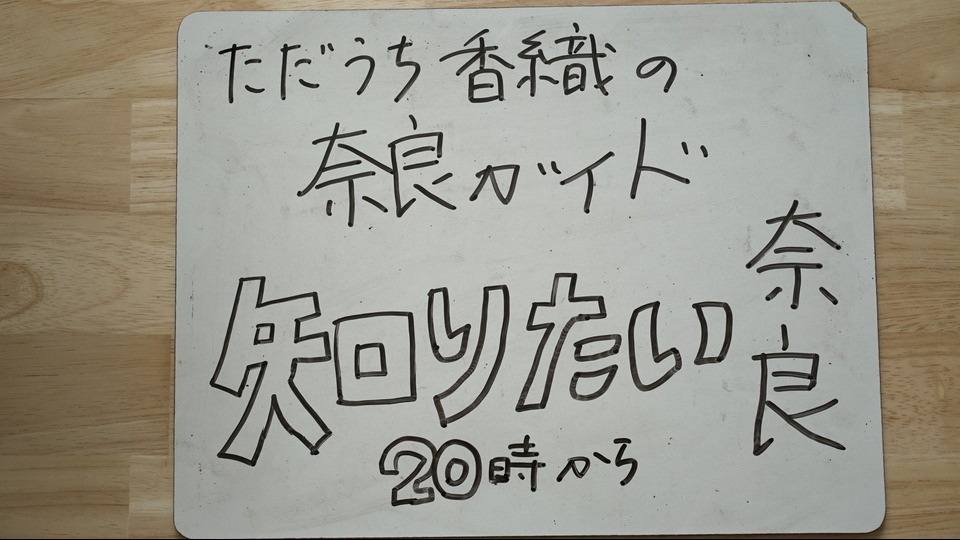 ただうち香織の
奈良ガイド
知りたい
奈良
20時から